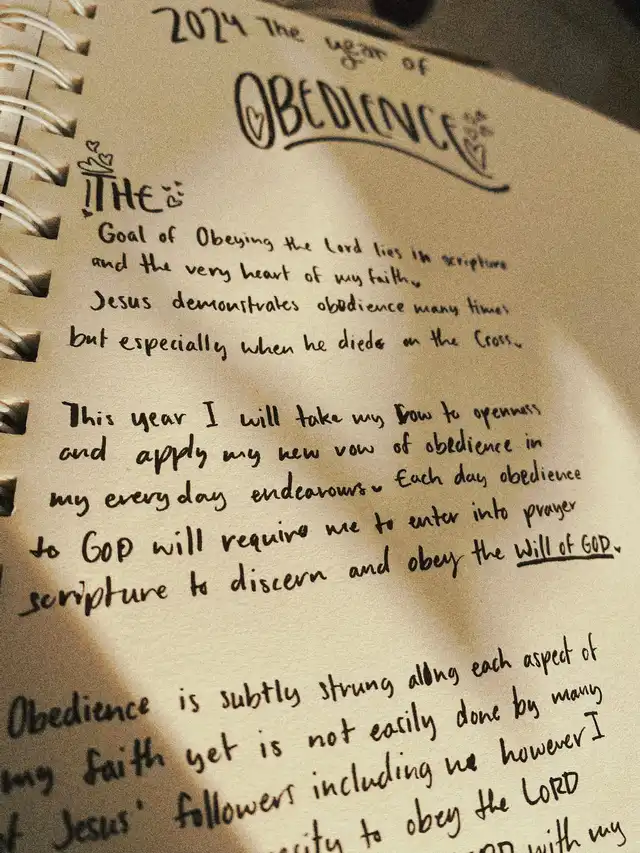 2024 The year of
OBEDIENCE
THE
Goal of Obeying the Lord lies in scripture
and the very heart of my faith.
Jesus demonstrates obedience many times
but especially when he died on the Cross.
This year I will take my vow to openness
and apply my new vow of obedience in
my every day endeavours. Each day obedience
to GOD will require me to enter into prayer
scripture to discern and obey the Will of GOD.
Obedience is subtly strung along each aspect of
my faith yet is not easily done by many
of Jesus' followers including me however I
to obey the LORD
with my